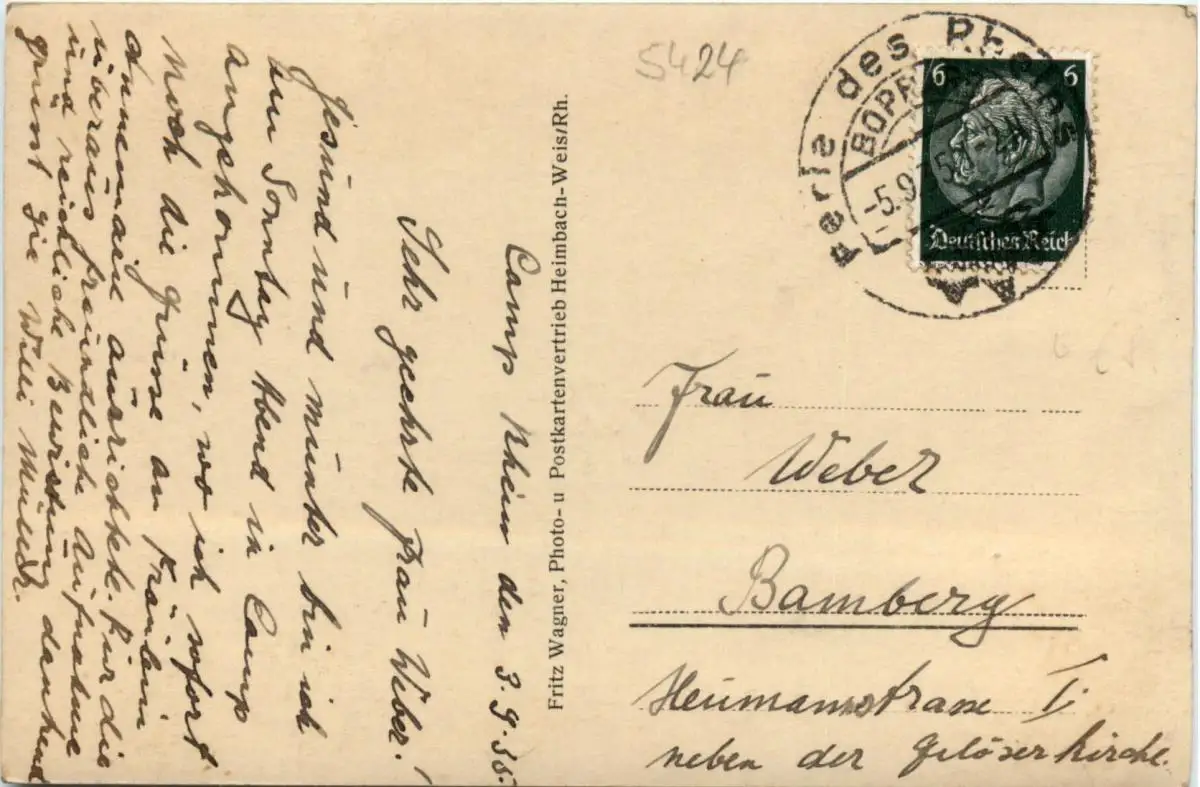 Camp Rhein den 3.9.35.
Sehr geehrte Frau Weber!
Gesund und munter bin ich
am Sonntag Abend in Camp
angekommen, wo ich sofort
noch die Grüsse an Fräulein
Annemarie ausrichtete. Für die
überaus freundliche Aufnahme
und reichliche Bewirtung dankend
grüsst Sie Willi
Fritz Wagner, Photo- u Postkartenvertrieb Heimbach-Weis/Rh.
5424
Perle des Rheins
BOPPARD
-5.9.35.
6 6
Deutsches Reich
Frau
Weber
Bamberg
Heumannstrasse 1.
neben der Erlöserkirche.